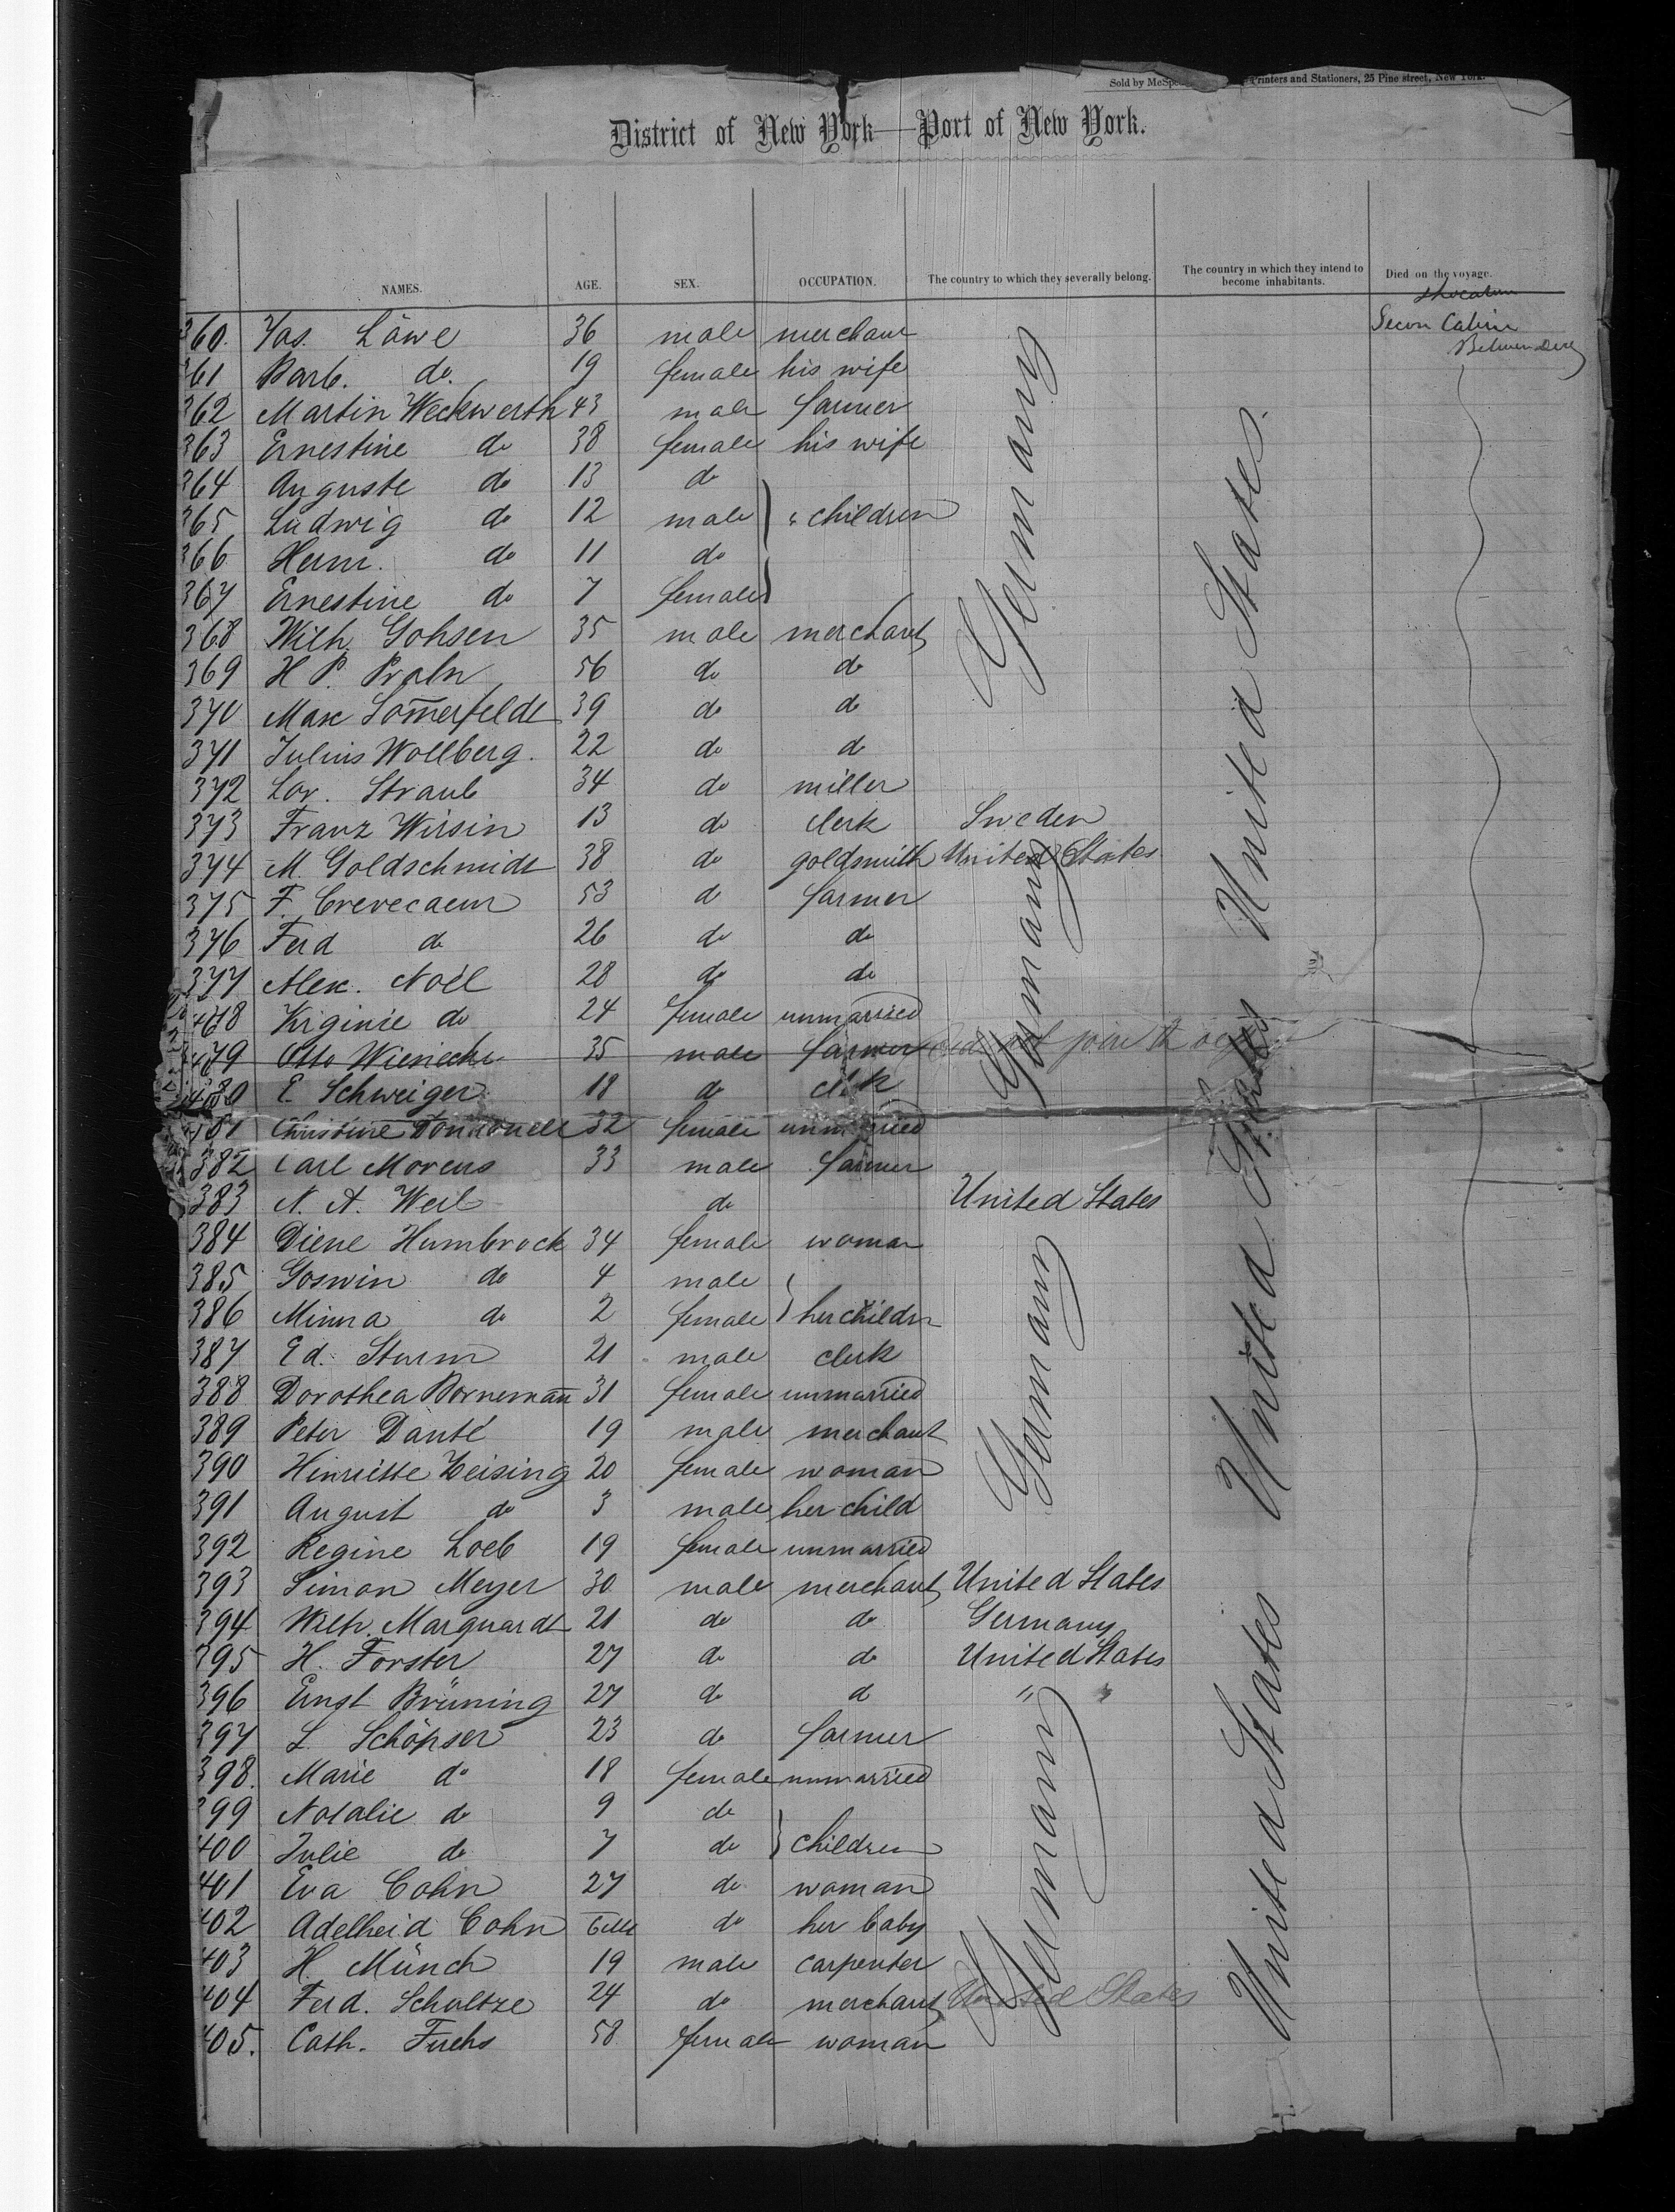 Sold by McSpe Printers and Stationers, 25 Pine street, New York.
District of New York—Port of New York.
NAMES. AGE. SEX. OCCUPATION. The country to which they severally belong. The country in which they intend to become inhabitants. Died on the voyage.
Secon Cabin
360. Jas. Läwe 36 male merchant
361 Barb. do. 19 female his wife
362 Martin Weckwerth 43 male farmer
363 Ernestine do 38 female his wife
364 Auguste do 13 do
365 Ludwig do 12 male children
366 Herm. do 11 do
367 Ernestine do 7 female
Germany
368 Wilh. Gohsen 35 male merchant
369 H P. Prahn 56 do do
370 Max Som̄erfeldt 39 do do
371 Julius Wollberg. 22 do do
372 Lor. Straub 34 do miller
United States.
373 Franz Wirsin 13 do clerk Sweden
374 M. Goldschmidt 38 do goldsmith United States
375 F. Crevecaeur 53 do farmer
376 Ferd do 26 do do
377 Alex. Noël 28 do do
478 Virginie do 24 female unmarried
479 Otto Wieniecke 35 male farmer
Germany
480 E. Schweiger 18 do clk
381 Christine 32 female unmarried
382 Carl Morens 33 male farmer
383 N. A. Weil do United States
384 Diene Humbrock 34 female woman
385 Goswin do 4 male
386 Minna do 2 female her childrn
387 Ed. Sturm 21 male clerk
388 Dorothea Borneman̄ 31 female unmarried
389 Peter Dauté 19 male merchant
Germany
United States
390 Henriette Zeising 20 female woman
391 August do 3 male her child
392 Regine Loeb 19 female unmarried
393 Simon Meyer 30 male merchant United States
394 Wilh. Marquardt 21 do do Germany
395 H. Forster 27 do do United States
396 Ernst Brüning 27 do do " "
397 L. Schöpser 23 do farmer
398. Marie do 18 female unmarried
399 Natalie do 9 do
400 Julie do 7 do children
401 Eva Cohn 27 do woman
402 Adelheid Cohn do her baby
403 H. Münch 19 male carpenter
404 Ferd. Schultze 24 do merchant United States
405. Cath. Fuchs 58 female woman
Germany
United States